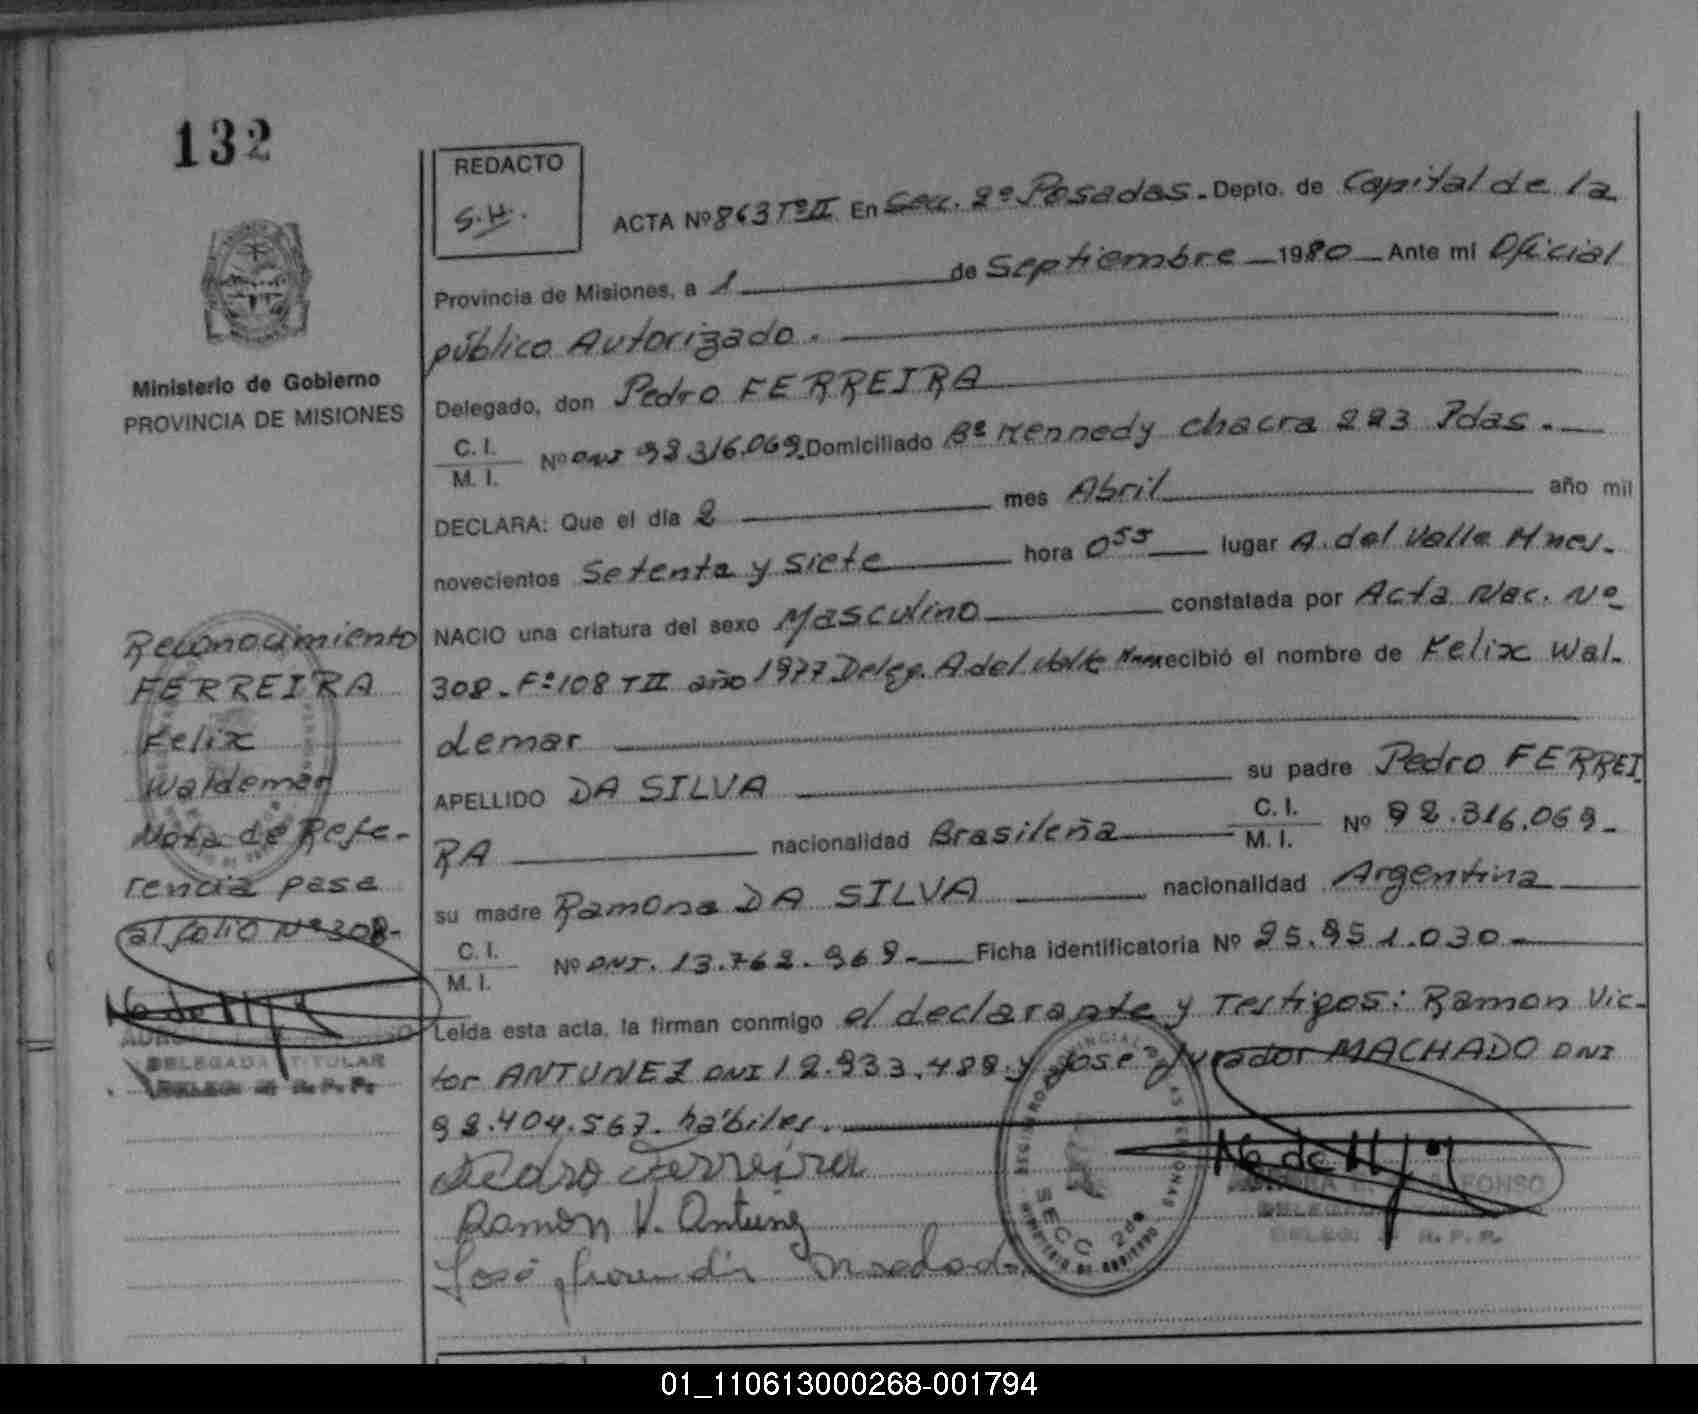 132
REDACTO
S.H.
ACTA Nº 863 Tº II En Secc. 2º Posadas. Depto. de Capital de la
Provincia de Misiones, a 1 de Septiembre 1980 Ante mi Oficial
público Autorizado.
Delegado, don Pedro FERREIRA
C. I.
M. I.
Nº DNI 92.316.069. Domiciliado Bº Kennedy chacra 223 Pdas.
DECLARA: Que el día 2 mes Abril año mil
novecientos Setenta y siete hora 0⁵⁵ lugar A. del Valle Mnes.
NACIO una criatura del sexo Masculino constatada por Acta Nac. Nº
308. Fº 108 T II año 1977 Deleg. A del Valle Mnes recibió el nombre de Felix Wal-
demar
APELLIDO DA SILVA su padre Pedro FERREI
RA nacionalidad Brasileña C. I. M. I. Nº 92.316.069-
su madre Ramona DA SILVA nacionalidad Argentina
C. I.
M. I.
Nº DNI. 13.762.969.- Ficha identificatoria Nº 25.951.030-
Leída esta acta, la firman conmigo el declarante y Testigos: Ramon Vic-
tor ANTUNEZ DNI 12.933.488 y Jose MACHADO DNI
92.404.567. hábiles.
Pedro Ferreira
Ramón V. Antunez
José
Ministerio de Gobierno
PROVINCIA DE MISIONES
Reconocimiento
FERREIRA
Felix
Waldemar
Nota de Refe-
rencia pasa
al folio Nº 308-
DELEGADA TITULAR
DELEG. R. P. P.
REGISTRO PROVINCIAL DE LAS PERSONAS
SECC 2da
MINISTERIO DE GOBIERNO
01_110613000268-001794